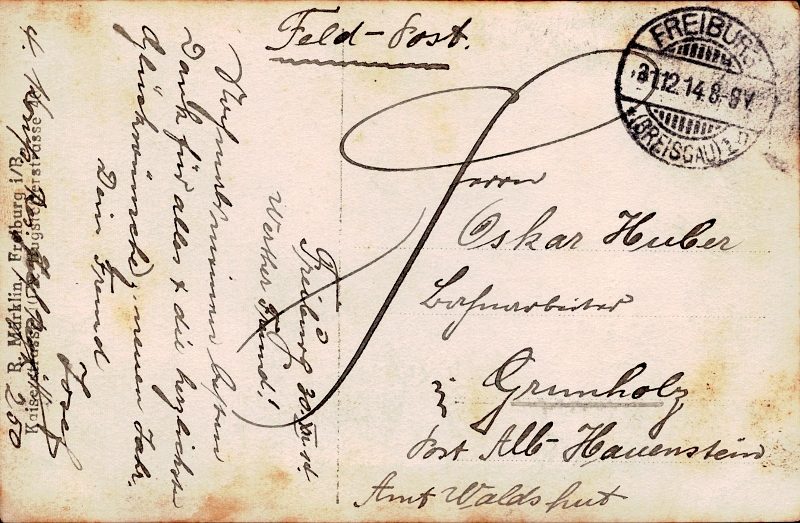 Feld-Post.
FREIBURG
31.12.14.8-9V
*(BREISGAU)1
Herrn
Oskar Huber
Bahnarbeiter
in
Grunholz
Post Alb-Hauenstein
Amt Waldshut
Freiburg 30.XII.14
Werther Freund!
Nochmals meinen besten
Dank für alles & die herzlichsten
Glückwünsche z. neuen Jahr.
Dein Freund
Josef
R. Märklin, Freiburg i/B.
250